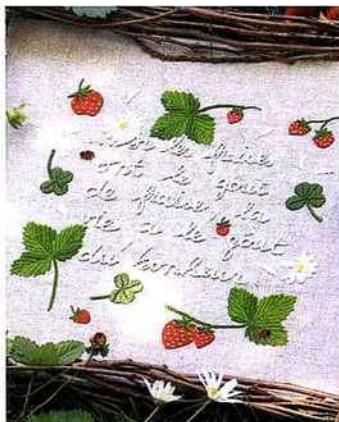 si les fraises
ont le goût
de fraise, la
vie a le goût
du bonheur